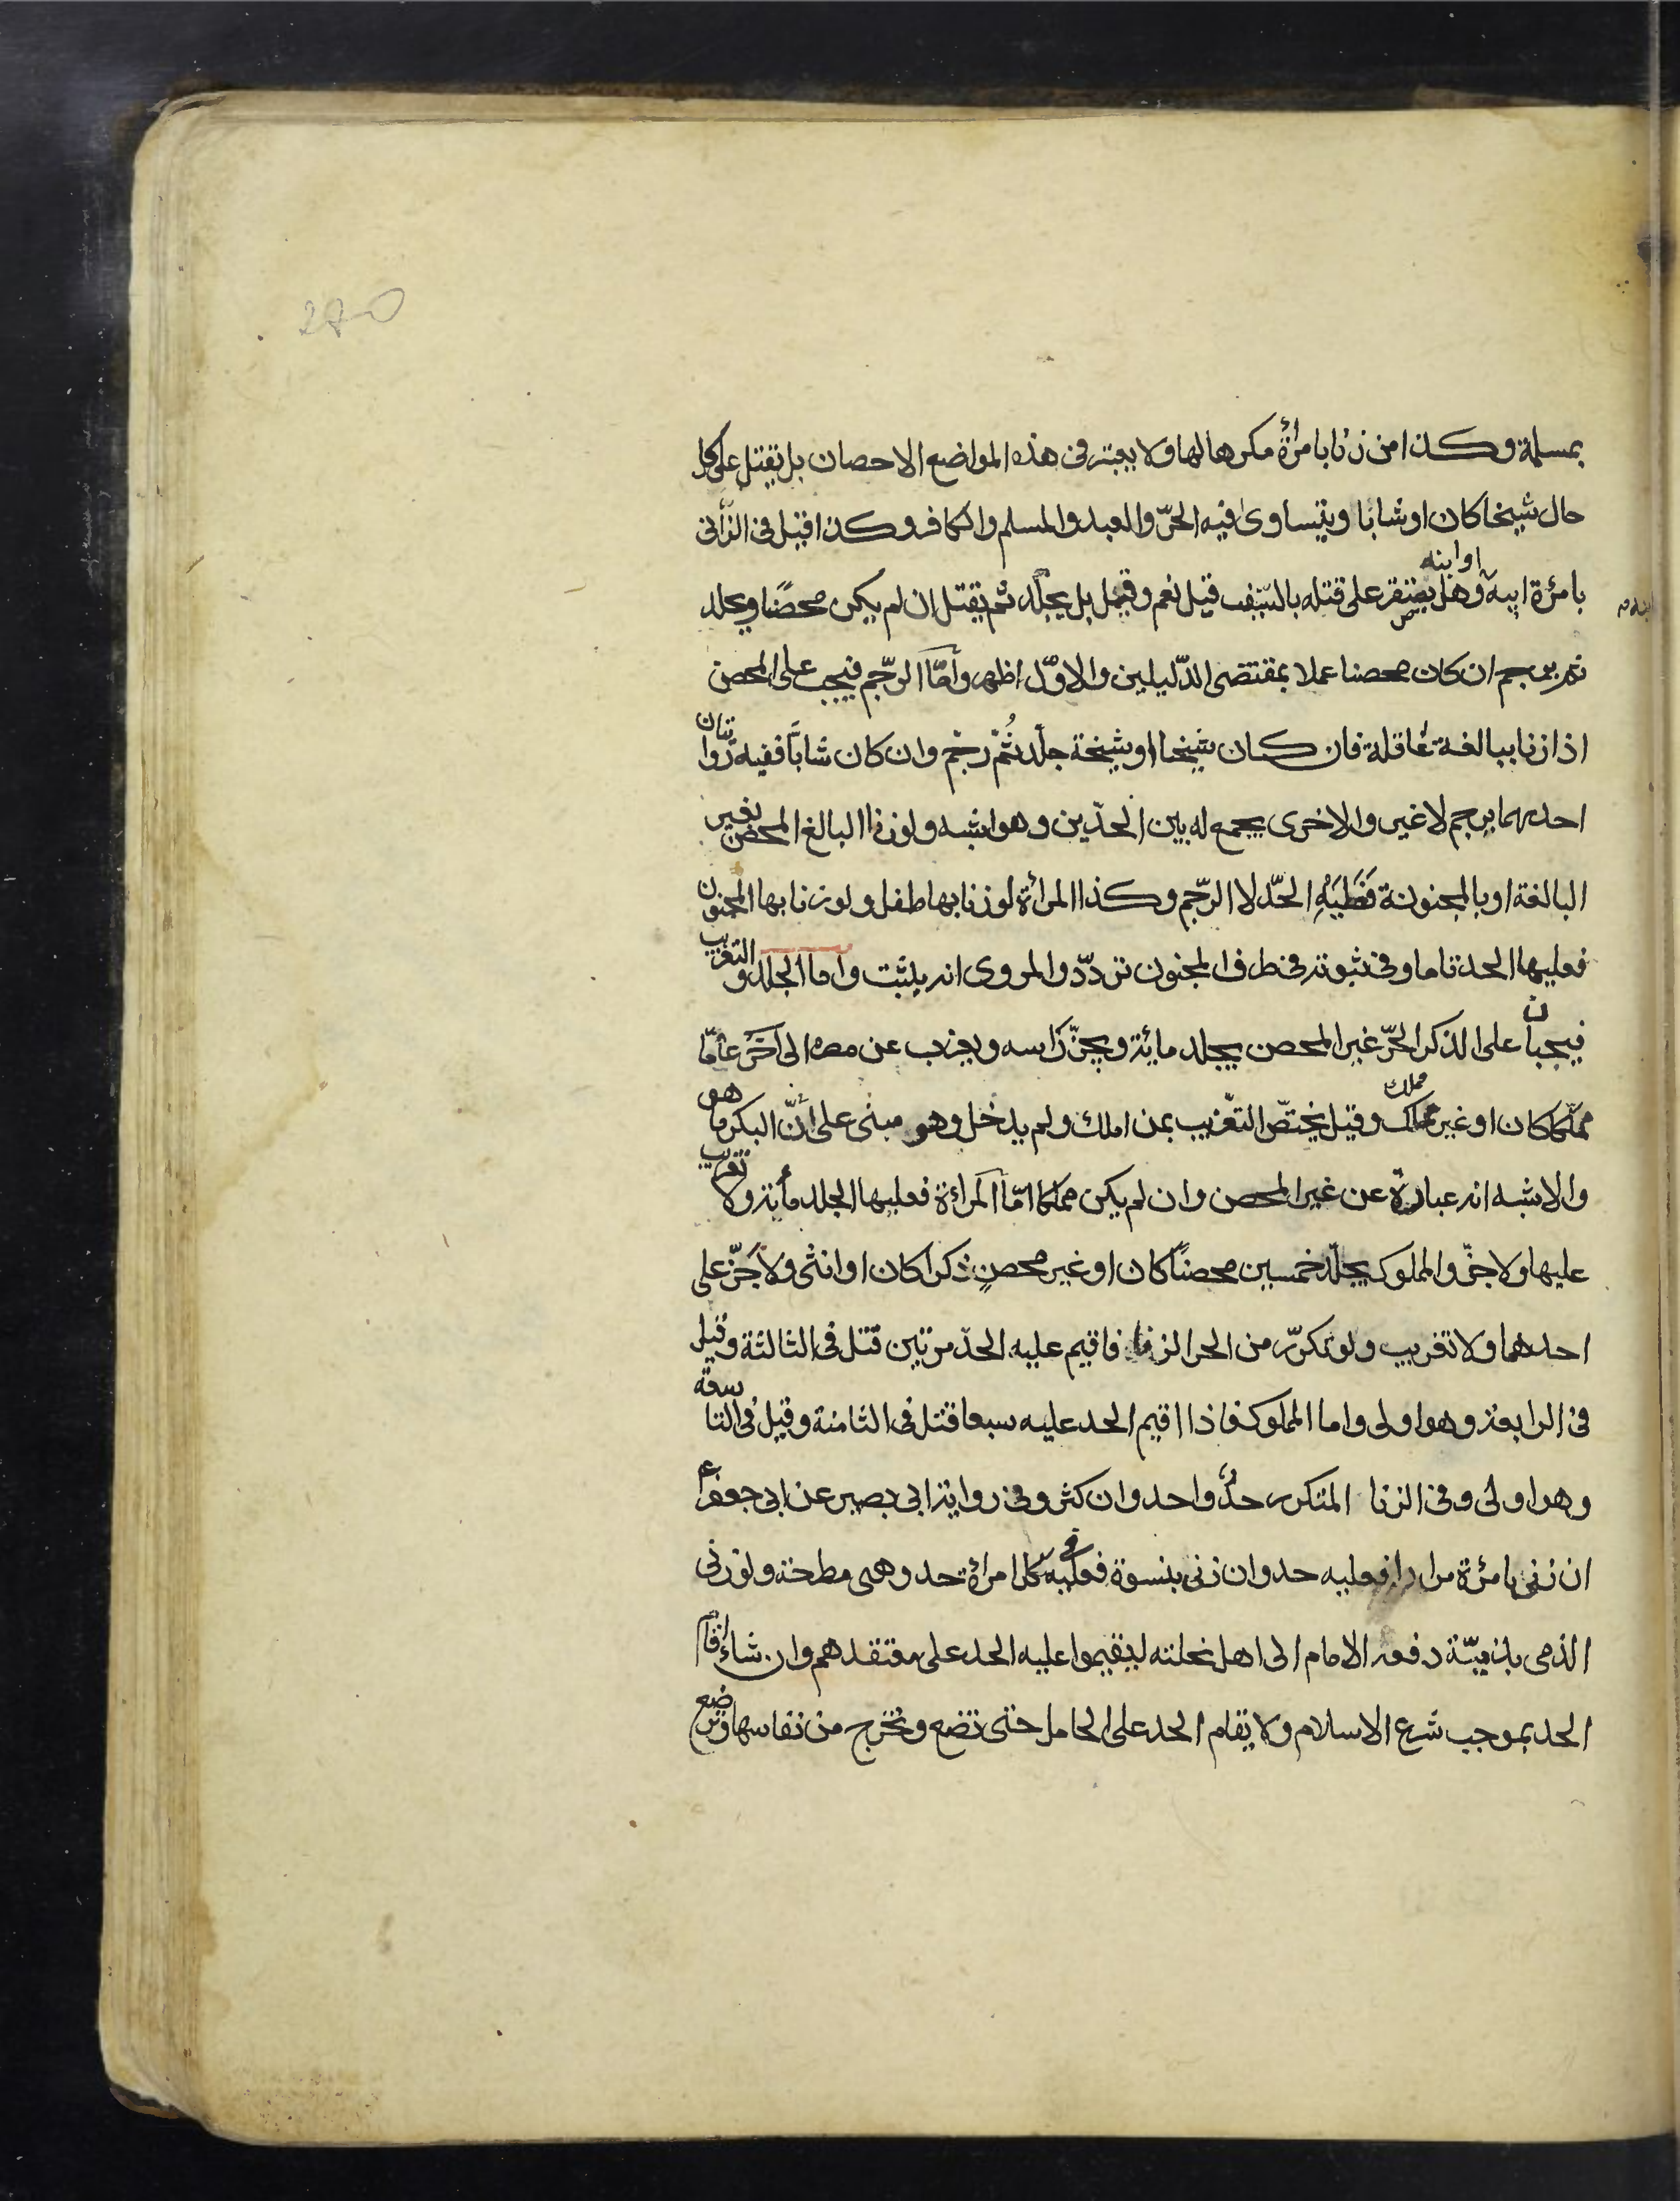 270
بمسلمة وكذا من زنا بامرأة مكرها لها ولا يعتبر فى هذه المواضع الاحصان بل يقتل على كل
حال شيخا كان او شابا ويتساوى فيه الحرّ والعبد والمسلم والكافر وكذا قيل فى الزانى
بامرئة ابيه او ابنه وهل يقتصر على قتله بالسّيف قيل نعم وقيل بل يجلد ثم يقتل ان لم يكن محصنًا ويجلد
ثم يرجم ان كان محصنا عملا بمقتضى الدّليلين والاوّل اظهر وامّا الرّجم فيجب على المحصن
اذا زنا ببالغة عاقلة فان كان شيخا او شيخة جلد ثُمّ رجم وان كان شابًّا ففيه روايتان
احدهما يرجم لا غير والاخرى يجمع له بين الحدّين وهو اشبه ولو زنا البالغ المحصن بغير
البالغة او بالمجنونة فعليه الحدّ لا الرّجم وكذا المرأة لو زنا بها طفل ولو زنا بها المجنون
فعليها الحد تاما وفى ثبوته فى طرف المجنون تردّد والمروى انه يثبت واما الجلد والتغريب
فيجبان على الذكر الحرّ غير المحصن يجلد مائة ويجزّ رأسه ويغرب عن مصره الى آخر عامًا
مملّكا كان او غير مملك مملك وقيل يختصّ التغريب بمن املك ولم يدخل وهو مبنى على أنّ البكر ما هو
والاشبه انه عبارة عن غير المحصن وان لم يكن مملكا امّا المراءة فعليها الجلد مأية ولا تغريب
عليها ولا جزّ والمملوك يجلد خمسين محصنًا كان او غير محصنٍ ذكرا كان او انثى ولا جزّ على
احدهما ولا تغريب ولو تكرّر من الحر الزنا فاقيم عليه الحدّ مرتين قتل فى الثالثة وقيل
فى الرابعة وهو اولى واما المملوك فاذا اقيم الحد عليه سبعا قتل فى الثامنة وقيل فى التاسعة
وهو اولى وفى الزنا المتكرر حدٌّ واحد وان كثر وفى رواية ابى بصير عن ابى جعفر ع
ان زنى بامرئة مرارا فعليه حد وان زنى بنسوة فعليه فى كل امرأة حد وهى مطرحة ولو زنى
الذمى بذميّة دفعه الامام الى اهل نحلته ليقيموا عليه الحد على معتقدهم وان شاء اقام
الحد بموجب شرع الاسلام ولا يقام الحد على الحامل حتى تضع وتخرج من نفاسها وترضع